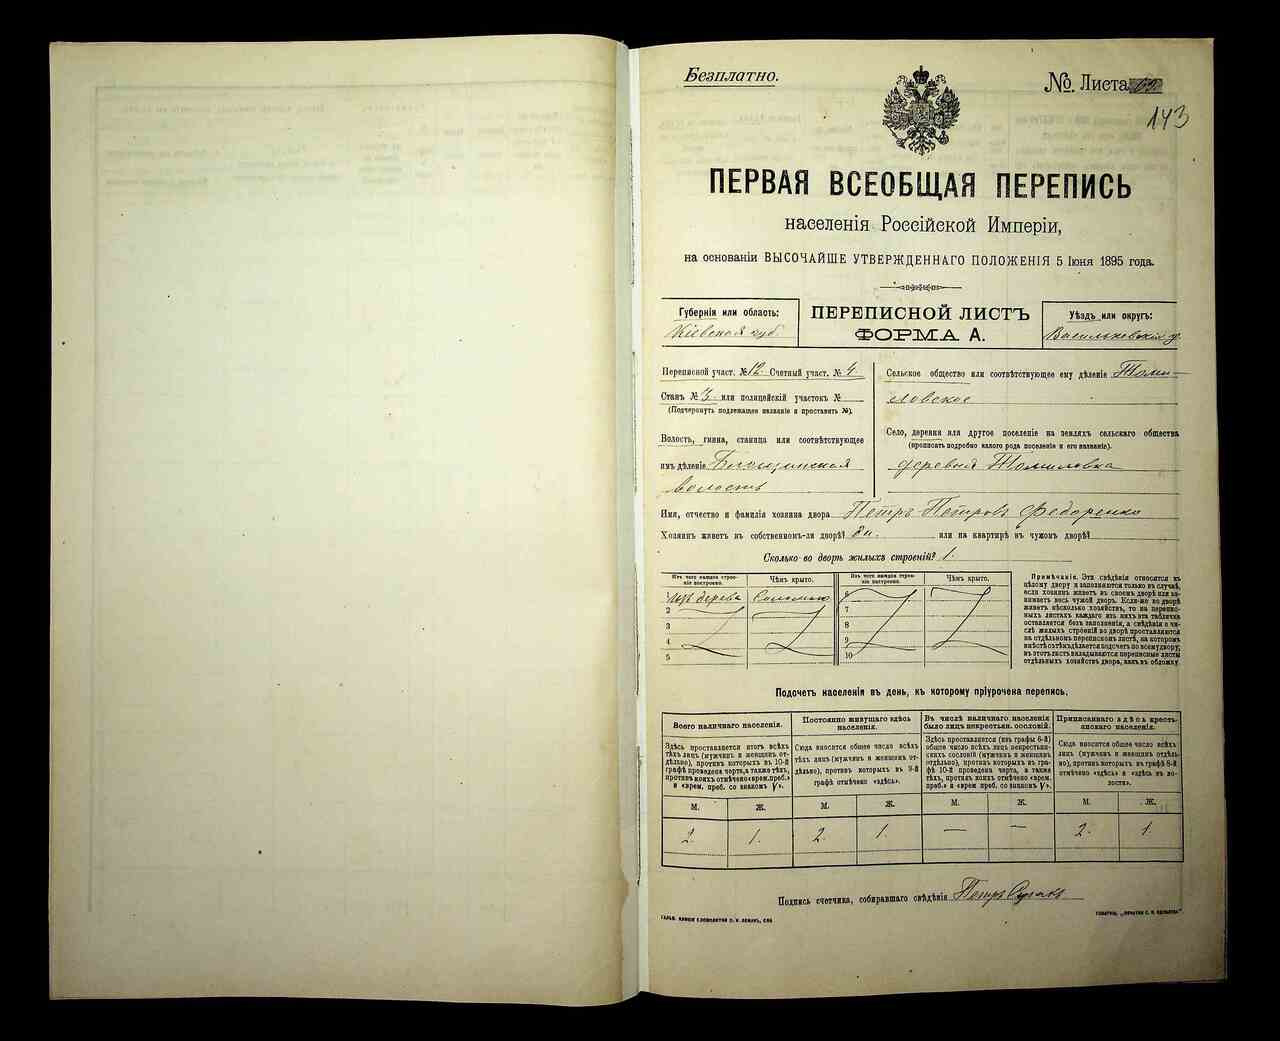 Безплатно.
№. Листа
143
ПЕРВАЯ ВСЕОБЩАЯ ПЕРЕПИСЬ
населенія Россійской Имперіи,
на основаніи ВЫСОЧАЙШЕ УТВЕРЖДЕННАГО ПОЛОЖЕНІЯ 5 Іюня 1895 года.
Губернія или область:
Кіевская губ.
ПЕРЕПИСНОЙ ЛИСТЪ
ФОРМА А.
Уѣздъ или округъ:
Васильковскій у.
Переписной участ. № 12. Счетный участ. № 4.
Станъ № 3. или полицейскій участокъ №
(Подчеркнуть подлежащее названіе и проставить №).
Волость, гмина, станица или соотвѣтствующее
имъ дѣленіе
волость
Сельское общество или соотвѣтствующее ему дѣленіе Томи-
ловское
Село, деревня или другое поселеніе на земляхъ сельскаго общества
(прописать подробно какого рода поселеніе и его названіе).
деревня Томиловка
Имя, отчество и фамилія хозяина двора Петръ Петровъ Федоренко
Хозяинъ живетъ въ собственномъ-ли дворѣ? или на квартирѣ въ чужомъ дворѣ?
Сколько во дворѣ жилыхъ строеній? 1.
Изъ чего каждое строеніе построено.
Чѣмъ крыто.
Изъ чего каждое строеніе построено.
Чѣмъ крыто.
изъ дерева Соломою 6
2 7
3 8
4 9
5 10
Примѣчаніе. Эти свѣдѣнія относятся къ
цѣлому двору и заполняются только въ случаѣ,
если хозяинъ живетъ въ своемъ дворѣ или за-
нимаетъ весь чужой дворъ. Если-же во дворѣ
живетъ нѣсколько хозяйствъ, то на перепис-
ныхъ листахъ каждаго изъ нихъ эта табличка
оставляется безъ заполненія, а свѣдѣнія о чи-
слѣ жилыхъ строеній во дворѣ проставляются
на отдѣльномъ переписномъ листѣ, на которомъ
вмѣстѣ съ тѣмъ дѣлается подсчетъ по всему двору;
въ этотъ листъ вкладываются переписные листы
отдѣльныхъ хозяйствъ двора, какъ въ обложку.
Подсчетъ населенія въ день, къ которому пріурочена перепись.
Всего наличнаго населенія.
Здѣсь проставляется итогъ всѣхъ
тѣхъ лицъ (мужчинъ и женщинъ от-
дѣльно), противъ которыхъ въ 10-й
графѣ проведена черта, а также тѣхъ,
противъ коихъ отмѣчено «врем. преб.»
и «врем. преб. со знакомъ V».
Постоянно живущаго здѣсь
населенія.
Сюда вносится общее число всѣхъ
тѣхъ лицъ (мужчинъ и женщинъ от-
дѣльно), противъ которыхъ въ 9-й
графѣ отмѣчено «здѣсь».
Въ числѣ наличнаго населенія
было лицъ некрестьян. сословій.
Здѣсь проставляется (изъ графы 6-й)
общее число всѣхъ лицъ некрестьян-
скихъ сословій (мужчинъ и женщинъ
отдѣльно), противъ которыхъ въ гра-
фѣ 10-й проведена черта, а также
тѣхъ, противъ коихъ отмѣчено «врем.
преб.» и «врем. преб. со знакомъ V».
Приписаннаго здѣсь кресть-
янскаго населенія.
Сюда вносится общее число всѣхъ
лицъ (мужчинъ и женщинъ отдѣль-
но), противъ которыхъ въ графѣ 8-й
отмѣчено «здѣсь» и «здѣсь въ во-
лости».
М. Ж. М. Ж. М. Ж. М. Ж.
2. 1. 2. 1. — — 2. 1.
Подпись счетчика, собиравшаго свѣдѣнія Петръ